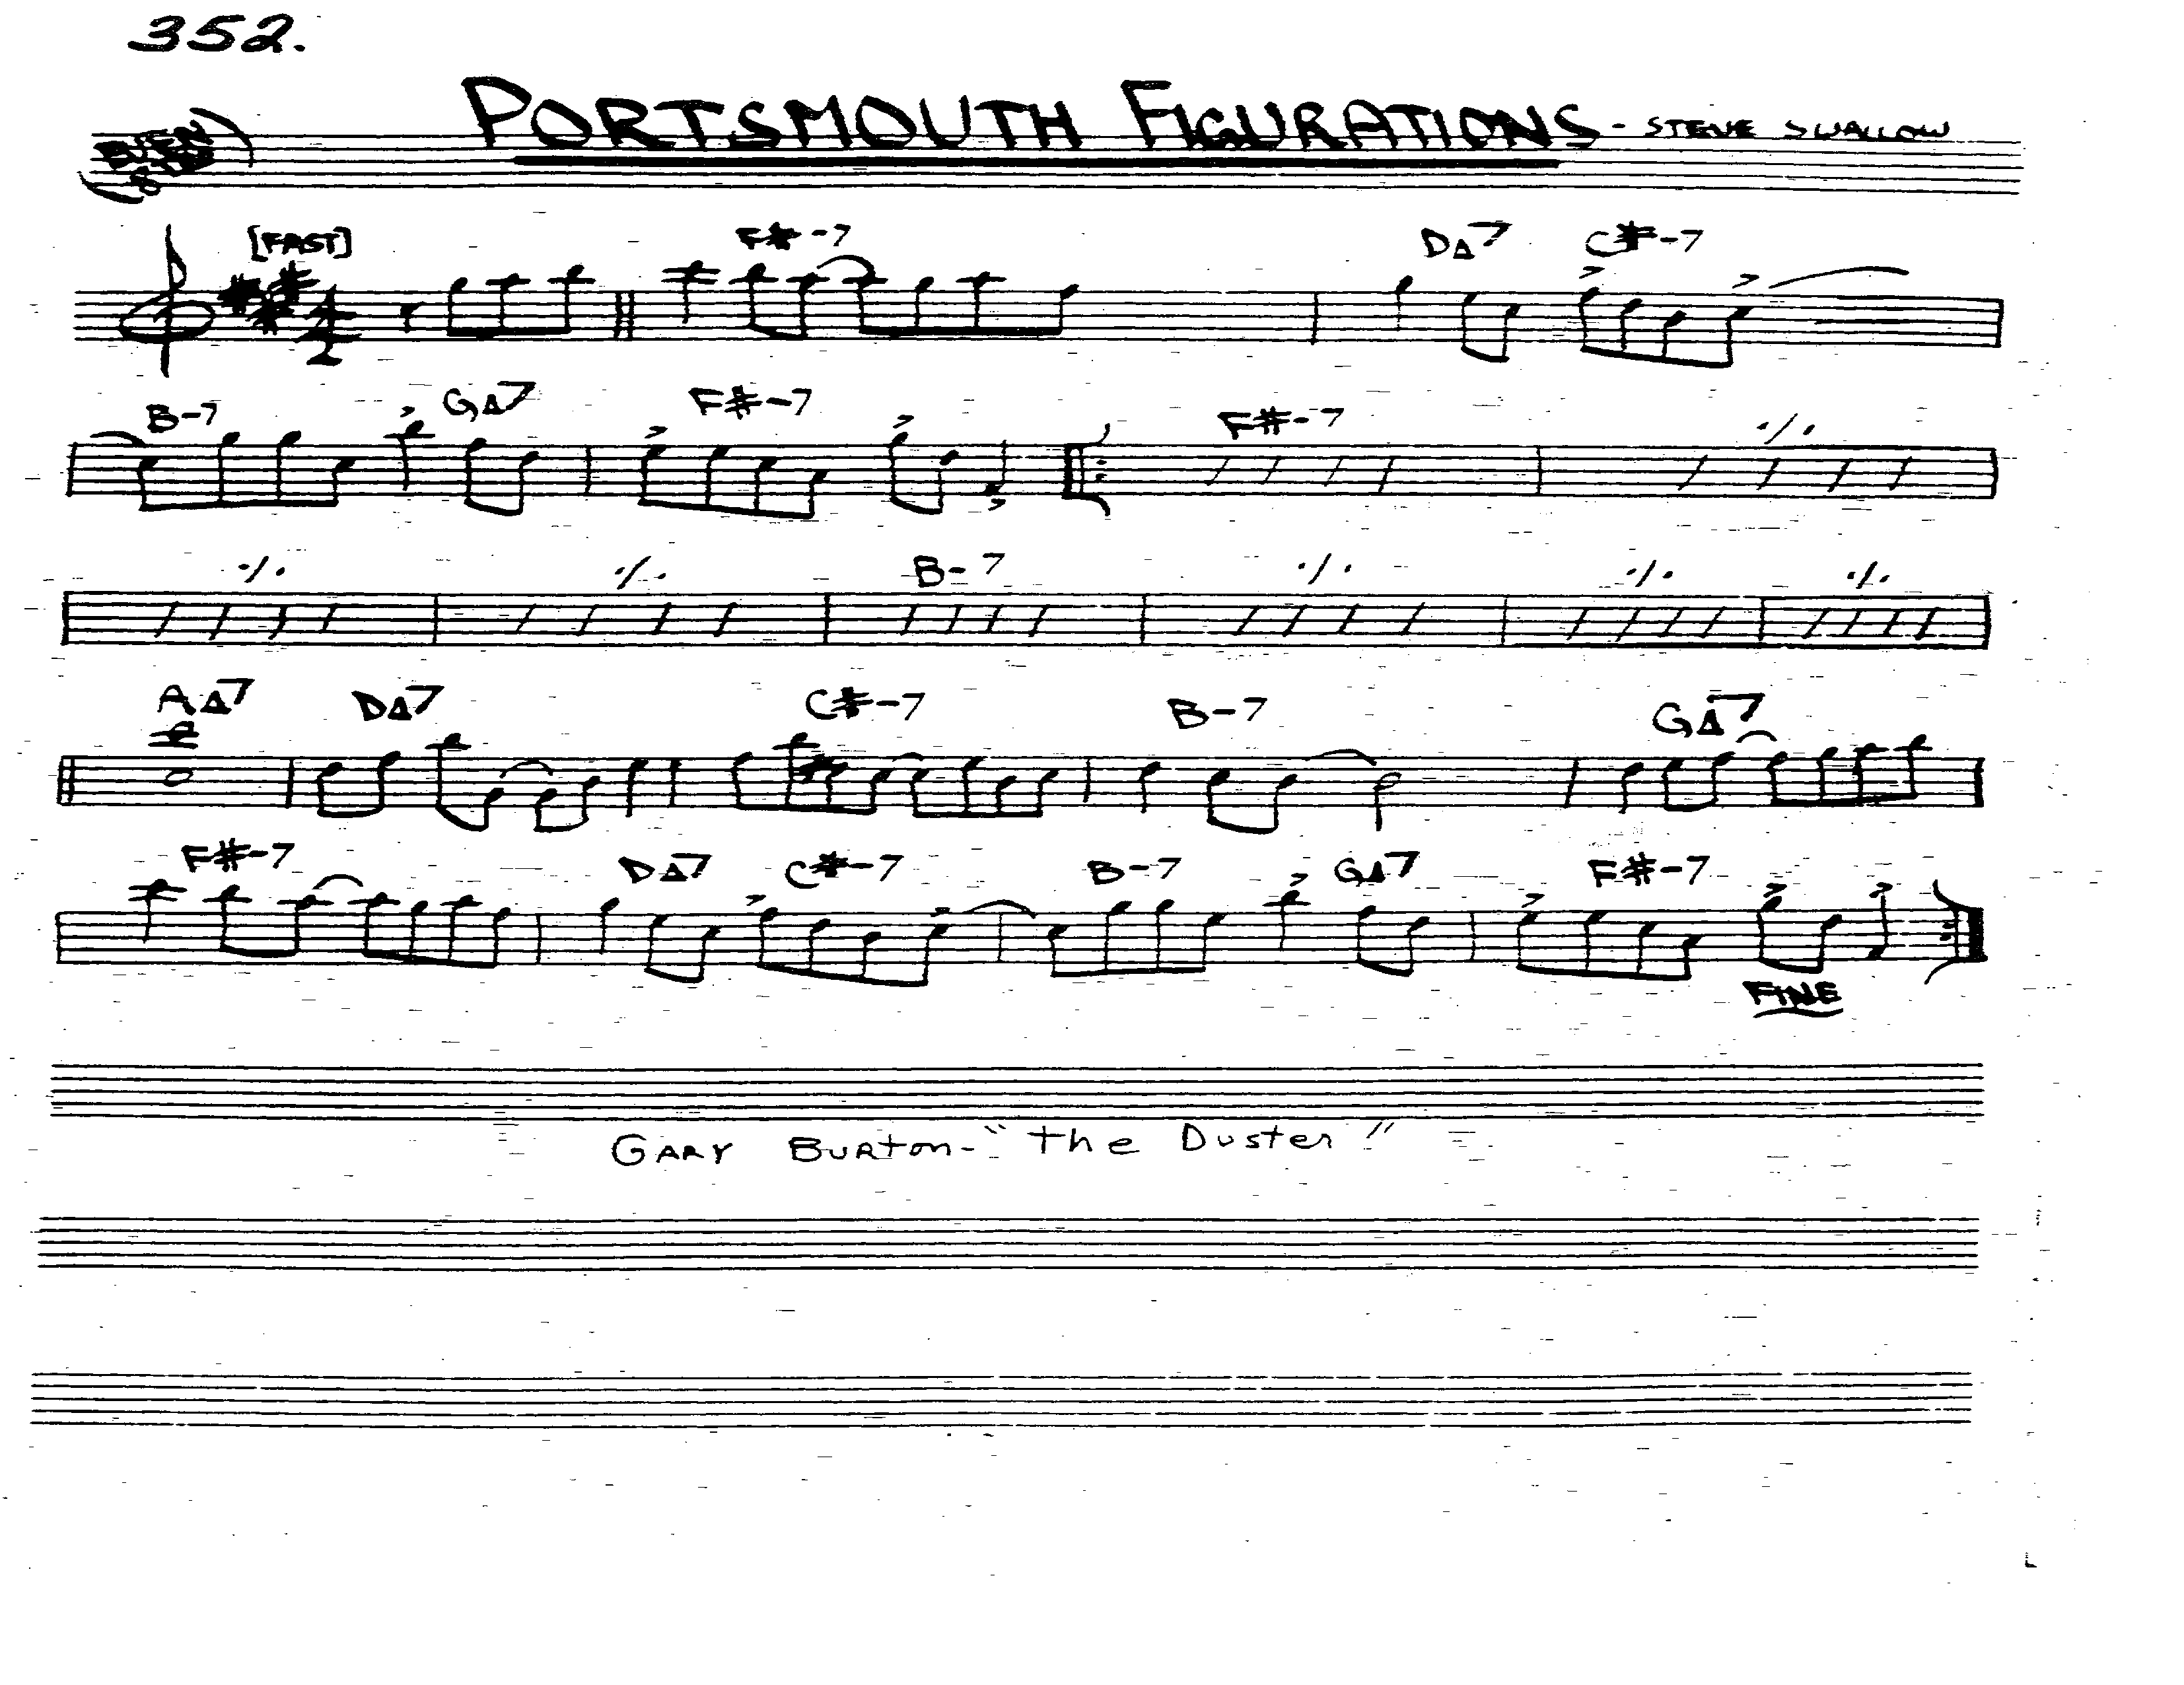 352.
PORTSMOUTH FIGURATIONS - STEVE SWALLOW
(EVEN 8THS)
[FAST] F#-7 D△7 C#-7
B-7 G△7 F#-7 F#-7 ./.
./. ./. B-7 ./. ./. ./.
A△7 D△7 C#-7 B-7 G△7
F#-7 D△7 C#-7 B-7 G△7 F#-7
FINE
GARY BURTON - "The Duster"